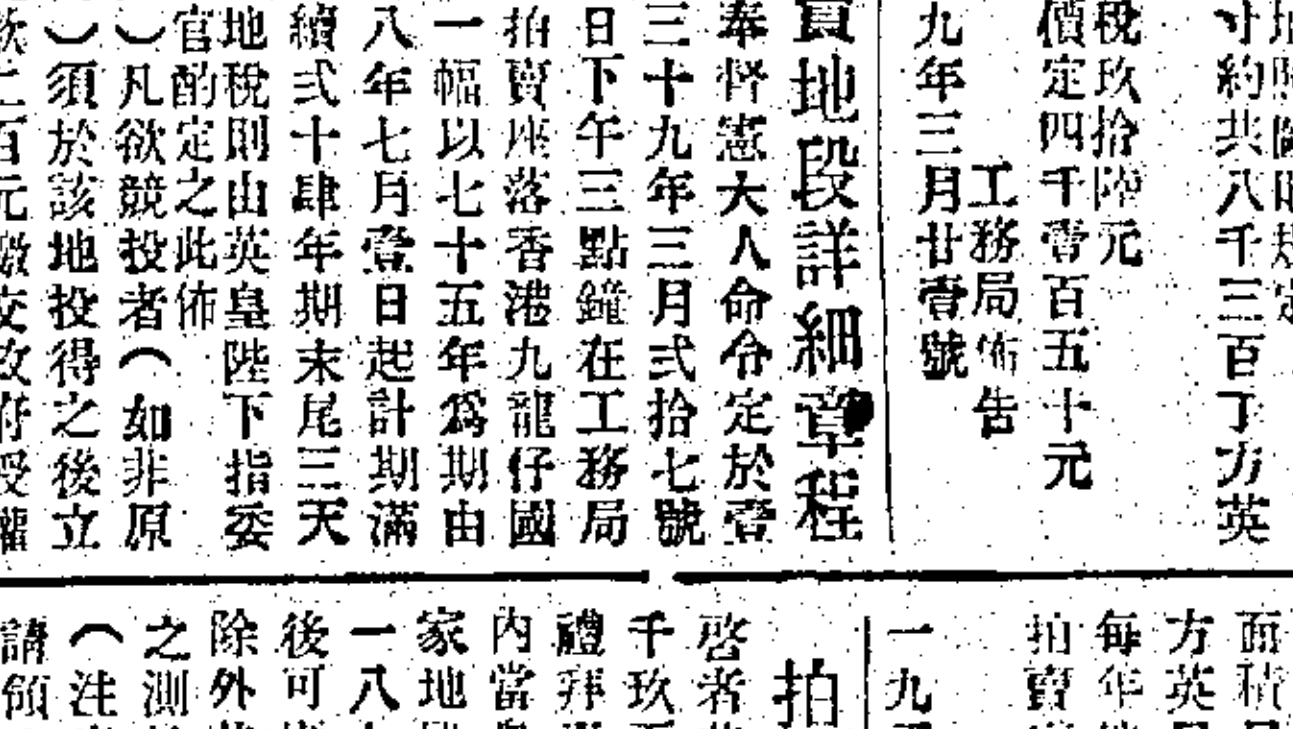 寸約共八千三百丁方英
稅玖拾陸元
價定四千壹百五十元
工務局佈告
九年三月廿壹號
賣地段詳細章程
奉督憲大人命令定於壹
三十九年三月弍拾七號
日下午三點鐘在工務局
拍賣座落香港九龍仔國
一幅以七十五年為期由
八年七月壹日起計期滿
續弍十肆年期末尾三天
地稅則由英皇陛下指委
官酌定之此佈
）凡欲競投者（如非原
）須於該地投得之後立
百元繳交政府授權
面積
每年
方英
拍賣
一九
拍
啓者
千玖
禮拜
內當
家地
一八
後可
除外
之測
（注
請領